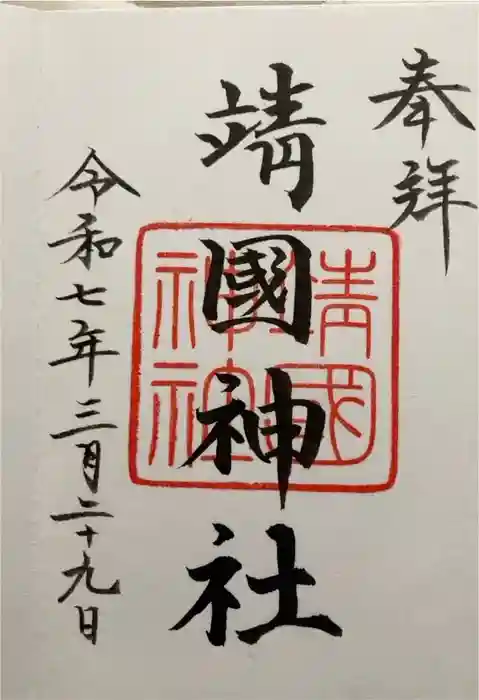 奉拝
靖國神社
靖國
神社
令和七年三月二十九日